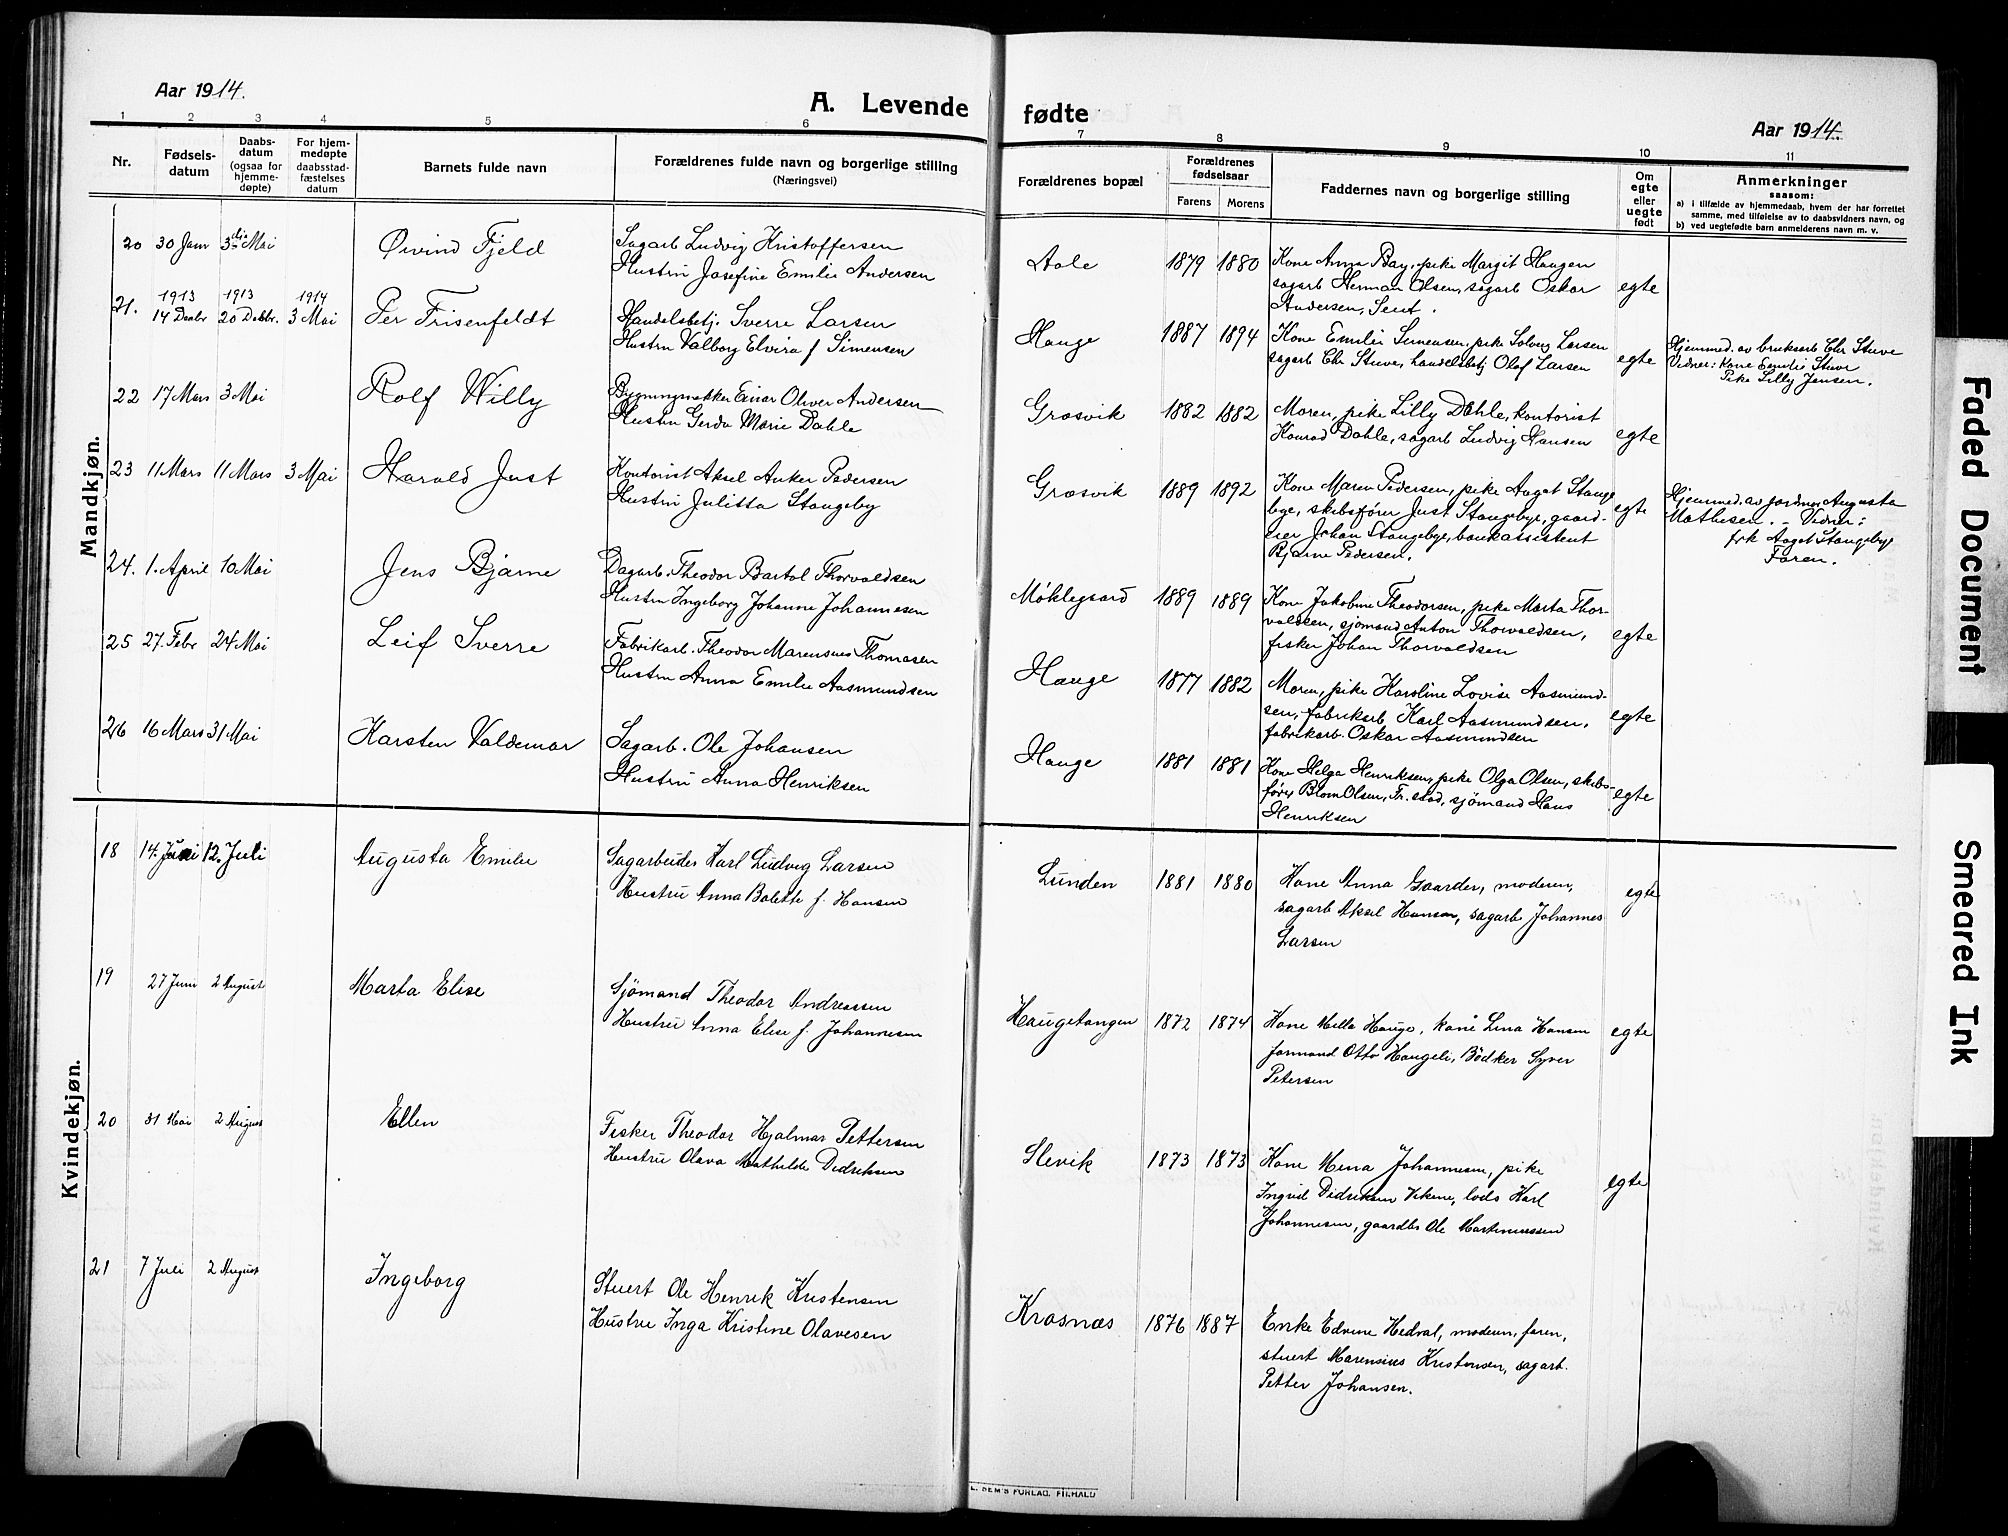 Aar 1914.
A. Levende fødte
Aar 1914.
1 2 3 4 5 6 7 8 9 10 11
Nr.
Fødsels-
datum
Daabs-
datum
(ogsaa for
hjemme-
døpte)
For hjem-
medøpte
daabsstad-
fæstelses
datum
Barnets fulde navn
Forældrenes fulde navn og borgerlige stilling
(Næringsvei)
Forældrenes bopæl
Forældrenes
fødselsaar
Farens Morens
Faddernes navn og borgerlige stilling
Om
egte
eller
uegte
født
Anmerkninger
saasom:
a) i tilfælde av hjemmedaab, hvem der har forrettet
samme, med tilføielse av to daabsvidners navn, og
b) ved uegtefødte barn anmelderens navn m. v.
Mandkjøn.
20 30 Janr 3die Mai
Øivind Fjeld
Sagarb Ludvig Kristoffersen
Hustru Josefine Emilie Andersen
Dale 1879 1880
Kone Anna Bay, pike Margit Haugen
sagarb Herman Olsen, sagarb Oskar
Andersen, Sent.
egte
21. 1913 14 Decbr 1913 20 Decbr. 1914 3 Mai
Per Frisenfeldt
Handelsbetj. Sverre Larsen
Hustru Valborg Elvira f Simensen
Hauge 1887 1894
Kone Emilie Simensen, pike Solveig Larsen
sagarb Chr Stuve, handelsbetj Olaf Larsen
egte
Hjemmed. av bruksarb Chr Stuve
Vidner: Kone Emilie Stuve
Pike Lilly Jensen.
22 17 Mars 3 Mai
Rolf Willy
Einar Oliver Andersen
Hustru Gerda Marie Dahle
Gresvik 1882 1882
Moren, pike Lilly Dahle, kontorist
Konrad Dahle, sagarb Ludvig Hansen
egte
23 11 Mars 11 Mars 3 Mai
Harald Just
Kontorist Aksel Anker Pedersen
Hustru Julitta Stangeby
Gresvik 1889 1892
Kone Maren Pedersen, pike Aagot Stange
bye, skibsfører Just Stangebye, gaard-
eier Johan Stangebye, bankassistent
Bjarne Pedersen.
egte
Hjemmed. av jordmor Augusta
Mathisen. - Vidner:
frk Aagot Stangebye
Faren.
24. 1. April 10 Mai
Jens Bjarne
Dagarb. Theodor Bartol Thorvaldsen
Hustru Ingeborg Johanne Johannesen
Møklegaard 1889 1889
Kone Jakobine Theodorsen, pike Marta Thor-
valdsen, sjømand Anton Thorvaldsen,
fisker Johan Thorvaldsen
egte
25 27. Febr 24 Mai
Leif Sverre
Fabrikarb. Theodor Marensius Thomasen
Hustru Anna Emilie Aasmundsen
Hauge 1877 1882
Moren, pike Karoline Lovise Aasmund-
sen, fabrikarb Karl Aasmundsen,
fabrikarb. Oskar Aasmundsen
egte
26 16 Mars 31 Mai
Karsten Valdemar
Sagarb. Ole Johansen
Hustru Anna Henriksen
Hauge 1881 1881
Kone Helga Henriksen, pike Olga Olsen, skibs-
fører Blom Olsen, Fr.stad, sjømand Hans
Henriksen
egte
Kvindekjøn.
18 14. Juni 12. Juli
Augusta Emilie
Sagarbeider Karl Ludvig Larsen
Hustru Anna Bolette f. Hansen
Lunden 1881 1880
Kone Anna Gaarder, moderen,
sagarb Aksel Hansen, sagarb Johannes
Larsen
egte
19 27 Juni 2 August
Marta Elise
Sjömand Theodor Andreassen
Hustru Anna Elise f. Johannesen
Haugetangen 1872 1874
Kone Milla Hauge, kone Lina Hansen
formand Otto Haugeli, Bödker Syver
Petersen
egte
20 31 Mai 2 August
Ellen
Fisker Theodor Hjalmar Pettersen
Hustru Olava Mathilde Didriksen
Slevik 1873 1873
Kone Mina Johannesen, pike
Ingrid Didriksen Vikene, lods Karl
Johannesen, gaardbr Ole Martinussen
egte
21 7 Juli 2 August
Ingeborg
Stuert Ole Henrik Kristensen
Hustru Inga Kristine Olavesen
Krosnæs 1876 1887
Enke Edvine Hedval, moderen, faren,
stuert Marensius Kristensen, sagarb.
Petter Johansen.
SEM'S FORLAG, F.HALD
Faded Document
Smeared Ink